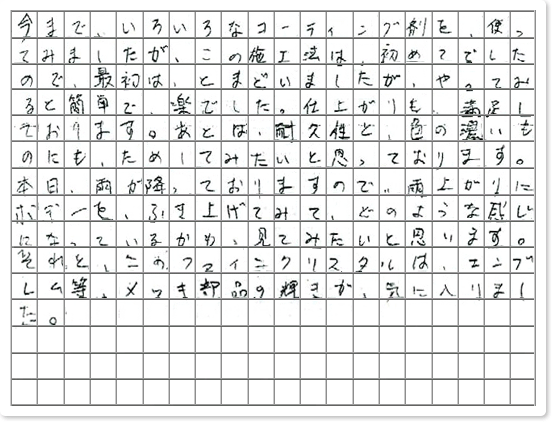 今まで、いろいろなコーティング剤を、使っ
てみましたが、この施工法は、初めてでした
ので、最初は、とまどいましたが、やってみ
ると簡単で、楽でした。仕上がりも、満足し
ております。あとは、耐久性と、色の濃いも
のにも、ためしてみたいと思っております。
本日、雨が降っておりますので、雨上がりに
ボデーを、ふき上げてみて、どのような感じ
になっているかも、見てみたいと思います。
それと、このファインクリスタルは、エンブ
レム等、メッキ部品の輝きが、気に入りまし
た。